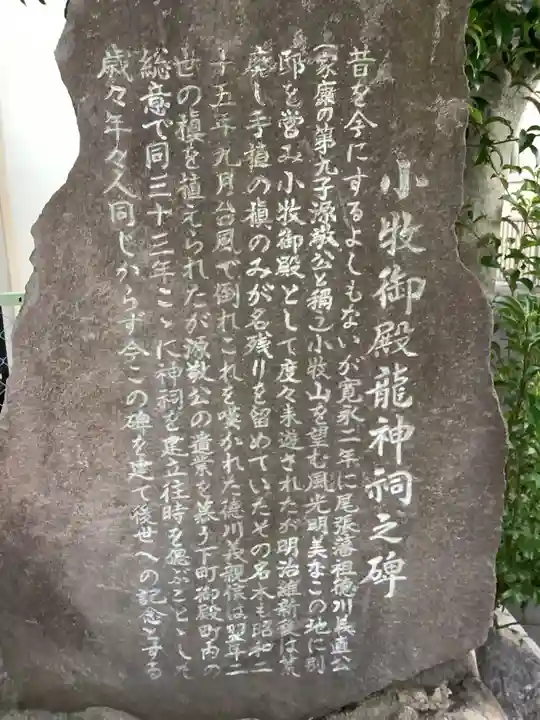 小牧御殿龍神祠之碑
昔を今にするよしもないが寛永二年に尾張藩祖徳川義直公
(家康の第九子源敬公と稱え)小牧山を望む風光明美なこの地に別
邸を営み小牧御殿として度々来遊されたが明治維新後は荒
廃し手植の槇のみが名残りを留めていたその名木も昭和二
十五年九月台風で倒れこれを嘆かれた徳川義親様は翌年二
世の槇を植えられたが源敬公の遺業を慕う下町御殿町内の
総意で同三十三年こゝに神祠を建立往時を偲ぶことゝした
歳々年々人同じからず今この碑を建て後世への記念とする